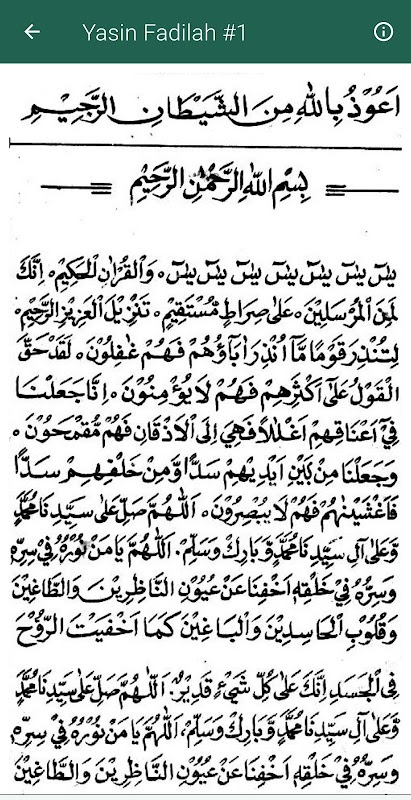 Yasin Fadilah #1
اَعُوْذُ بِاللهِ مِنَ الشَّيْطَانِ الرَّجِيْمِ
بِسْمِ اللهِ الرَّحْمٰنِ الرَّحِيْمِ
يٰسٓ يٰسٓ يٰسٓ يٰسٓ يٰسٓ يٰسٓ يٰسٓ ۰ وَالْقُرْاٰنِ الْحَكِيْمِ ۰ اِنَّكَ
لَمِنَ الْمُرْسَلِيْنَ ۰ عَلٰى صِرَاطٍ مُسْتَقِيْمٍ ۰ تَنْزِيْلَ الْعَزِيْزِ الرَّحِيْمِ ۰
لِتُنْذِرَ قَوْمًا مَّآ اُنْذِرَ اٰبَاؤُهُمْ فَهُمْ غٰفِلُوْنَ ۰ لَقَدْ حَقَّ
الْقَوْلُ عَلٰٓى اَكْثَرِهِمْ فَهُمْ لَا يُؤْمِنُوْنَ ۰ اِنَّا جَعَلْنَا
فِيْٓ اَعْنَاقِهِمْ اَغْلٰلًا فَهِيَ اِلَى الْاَذْقَانِ فَهُمْ مُّقْمَحُوْنَ ۰
وَجَعَلْنَا مِنْ بَيْنِ اَيْدِيْهِمْ سَدًّا وَّمِنْ خَلْفِهِمْ سَدًّا
فَاَغْشَيْنٰهُمْ فَهُمْ لَا يُبْصِرُوْنَ ۰ اَللّٰهُمَّ صَلِّ عَلٰى سَيِّدِنَا مُحَمَّدٍ
وَّعَلٰى اٰلِ سَيِّدِنَا مُحَمَّدٍ وَّبَارِكْ وَسَلِّمْ. اَللّٰهُمَّ يَا مَنْ نُوْرُهُ فِيْ سِرِّهِ
وَسِرُّهُ فِيْ خَلْقِهِ اَخْفِنَا عَنْ عُيُوْنِ النَّاظِرِيْنَ وَالطَّاغِيْنَ
وَقُلُوْبِ الْحَاسِدِيْنَ وَالْبَاغِيْنَ كَمَا اَخْفَيْتَ الرُّوْحَ
فِى الْجَسَدِ اِنَّكَ عَلٰى كُلِّ شَيْءٍ قَدِيْرٌ. اَللّٰهُمَّ صَلِّ عَلٰى سَيِّدِنَا مُحَمَّدٍ
وَّعَلٰى اٰلِ سَيِّدِنَا مُحَمَّدٍ وَّبَارِكْ وَسَلِّمْ. اَللّٰهُمَّ يَا مَنْ نُوْرُهُ فِيْ سِرِّهِ
وَسِرُّهُ فِيْ خَلْقِهِ اَخْفِنَا عَنْ عُيُوْنِ النَّاظِرِيْنَ وَالطَّاغِيْنَ